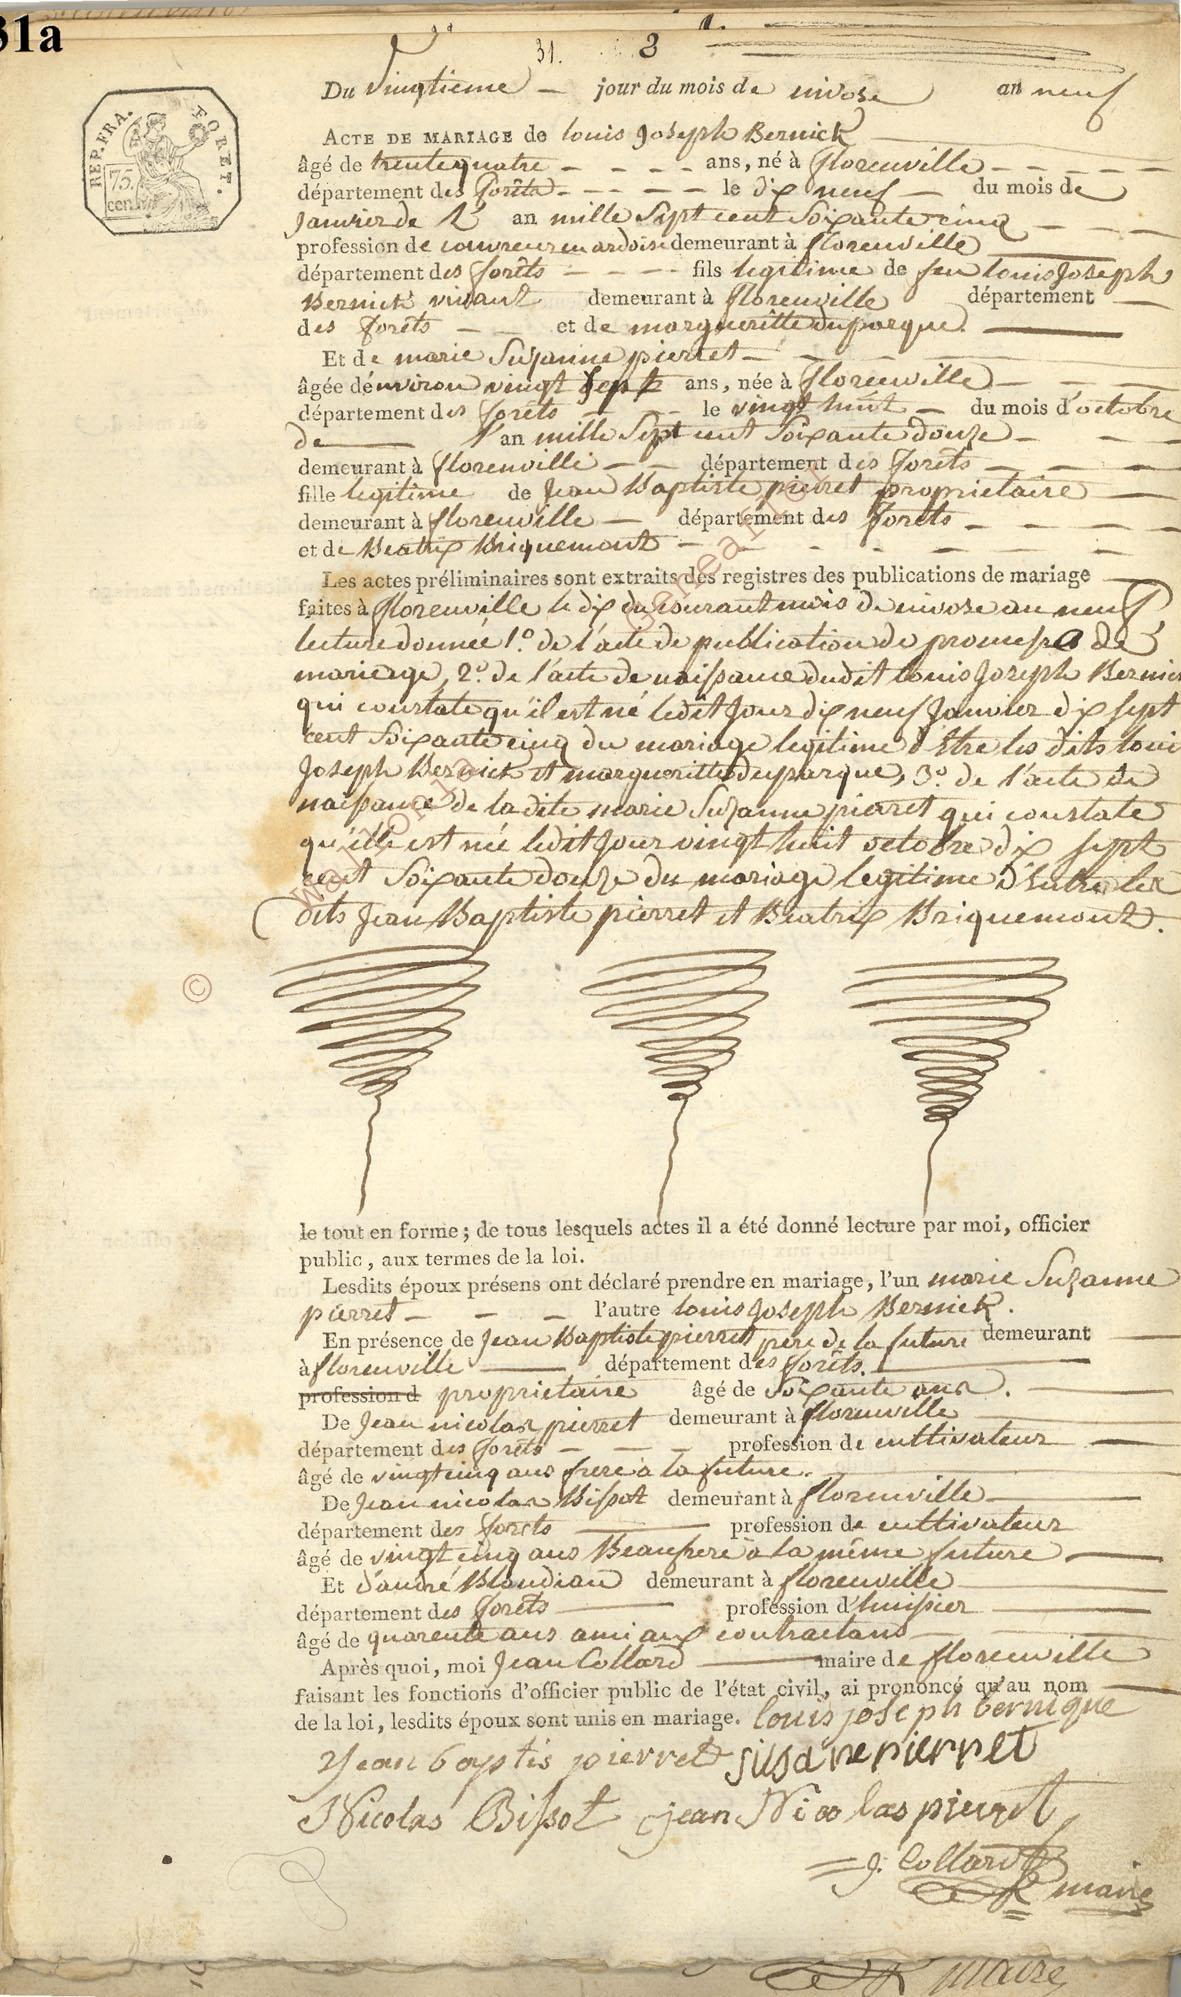 31a
31. 3
REP.FRA. FORET.
75. cen.
Du vingtieme jour du mois de nivose an neuf
ACTE DE MARIAGE de louis Joseph Bernick
âgé de trente quatre ans, né à florenville
département des forêts le dix neuf du mois de
Janvier de l' an mille Sept cent Soixante cinq
profession de couvreur en ardoise demeurant à florenville
département des forêts fils legitime de feu louis Joseph
Bernick vivant demeurant à florenville département
des forêts et de margueritte duparque.
Et de marie Suzanne pierret
âgée d'environ vingt sept ans, née à florenville
département des forêts le vingt huit du mois d'octobre
de l'an mille Sept cent Soixante douze
demeurant à florenville département des forêts
fille legitime de Jean Baptiste pierret proprietaire
demeurant à florenville département des forêts
et de Beatrix Briquemont
Les actes préliminaires sont extraits des registres des publications de mariage
faites à florenville le dix du courant mois de nivose an neuf
lecture donnée 1.° de l'acte de publication de promesse de
mariage, 2.° de l'acte de naissance dudit louis Joseph Bernick
qui constate qu'il est né ledit Jour dix neuf Janvier dix sept
cent Soixante cinq du mariage legitime d'Etre les dits loui
Joseph Bernick et margueritte duparque, 3.° de l'acte de
naissance de la dite marie Suzanne pierret qui constate
qu'elle est née ledit Jour vingt huit octobre dix sept
cent Soixante douze du mariage legitime d'Entre les
dits Jean Baptiste pierret et Beatrix Briquemont.
©
le tout en forme ; de tous lesquels actes il a été donné lecture par moi, officier
public, aux termes de la loi.
Lesdits époux présens ont déclaré prendre en mariage, l'un marie Suzanne
pierret l'autre louis Joseph Bernick.
En présence de Jean Baptiste pierret pere de la future demeurant
à florenville département des forêts.
profession d proprietaire âgé de Soixante ans.
De Jean nicolas pierret demeurant à florenville
département des forêts profession de cultivateur
âgé de vingt cinq ans frere à la future.
De Jean nicolas Bissot demeurant à florenville
département des forets profession de cultivateur
âgé de vingt cinq ans Beaufrere à la même future
Et d'andré Blondiau demeurant à florenville
département des forêts profession d'huissier
âgé de quarente ans ami aux contractans
Après quoi, moi Jean Collard maire de florenville
faisant les fonctions d'officier public de l'état civil, ai prononcé qu'au nom
de la loi, lesdits époux sont unis en mariage. louis joseph bernique
Jean baptis pierret susane pierret
Nicolas Bissot jean Nicolas pierret
J. Collard
maire
maire